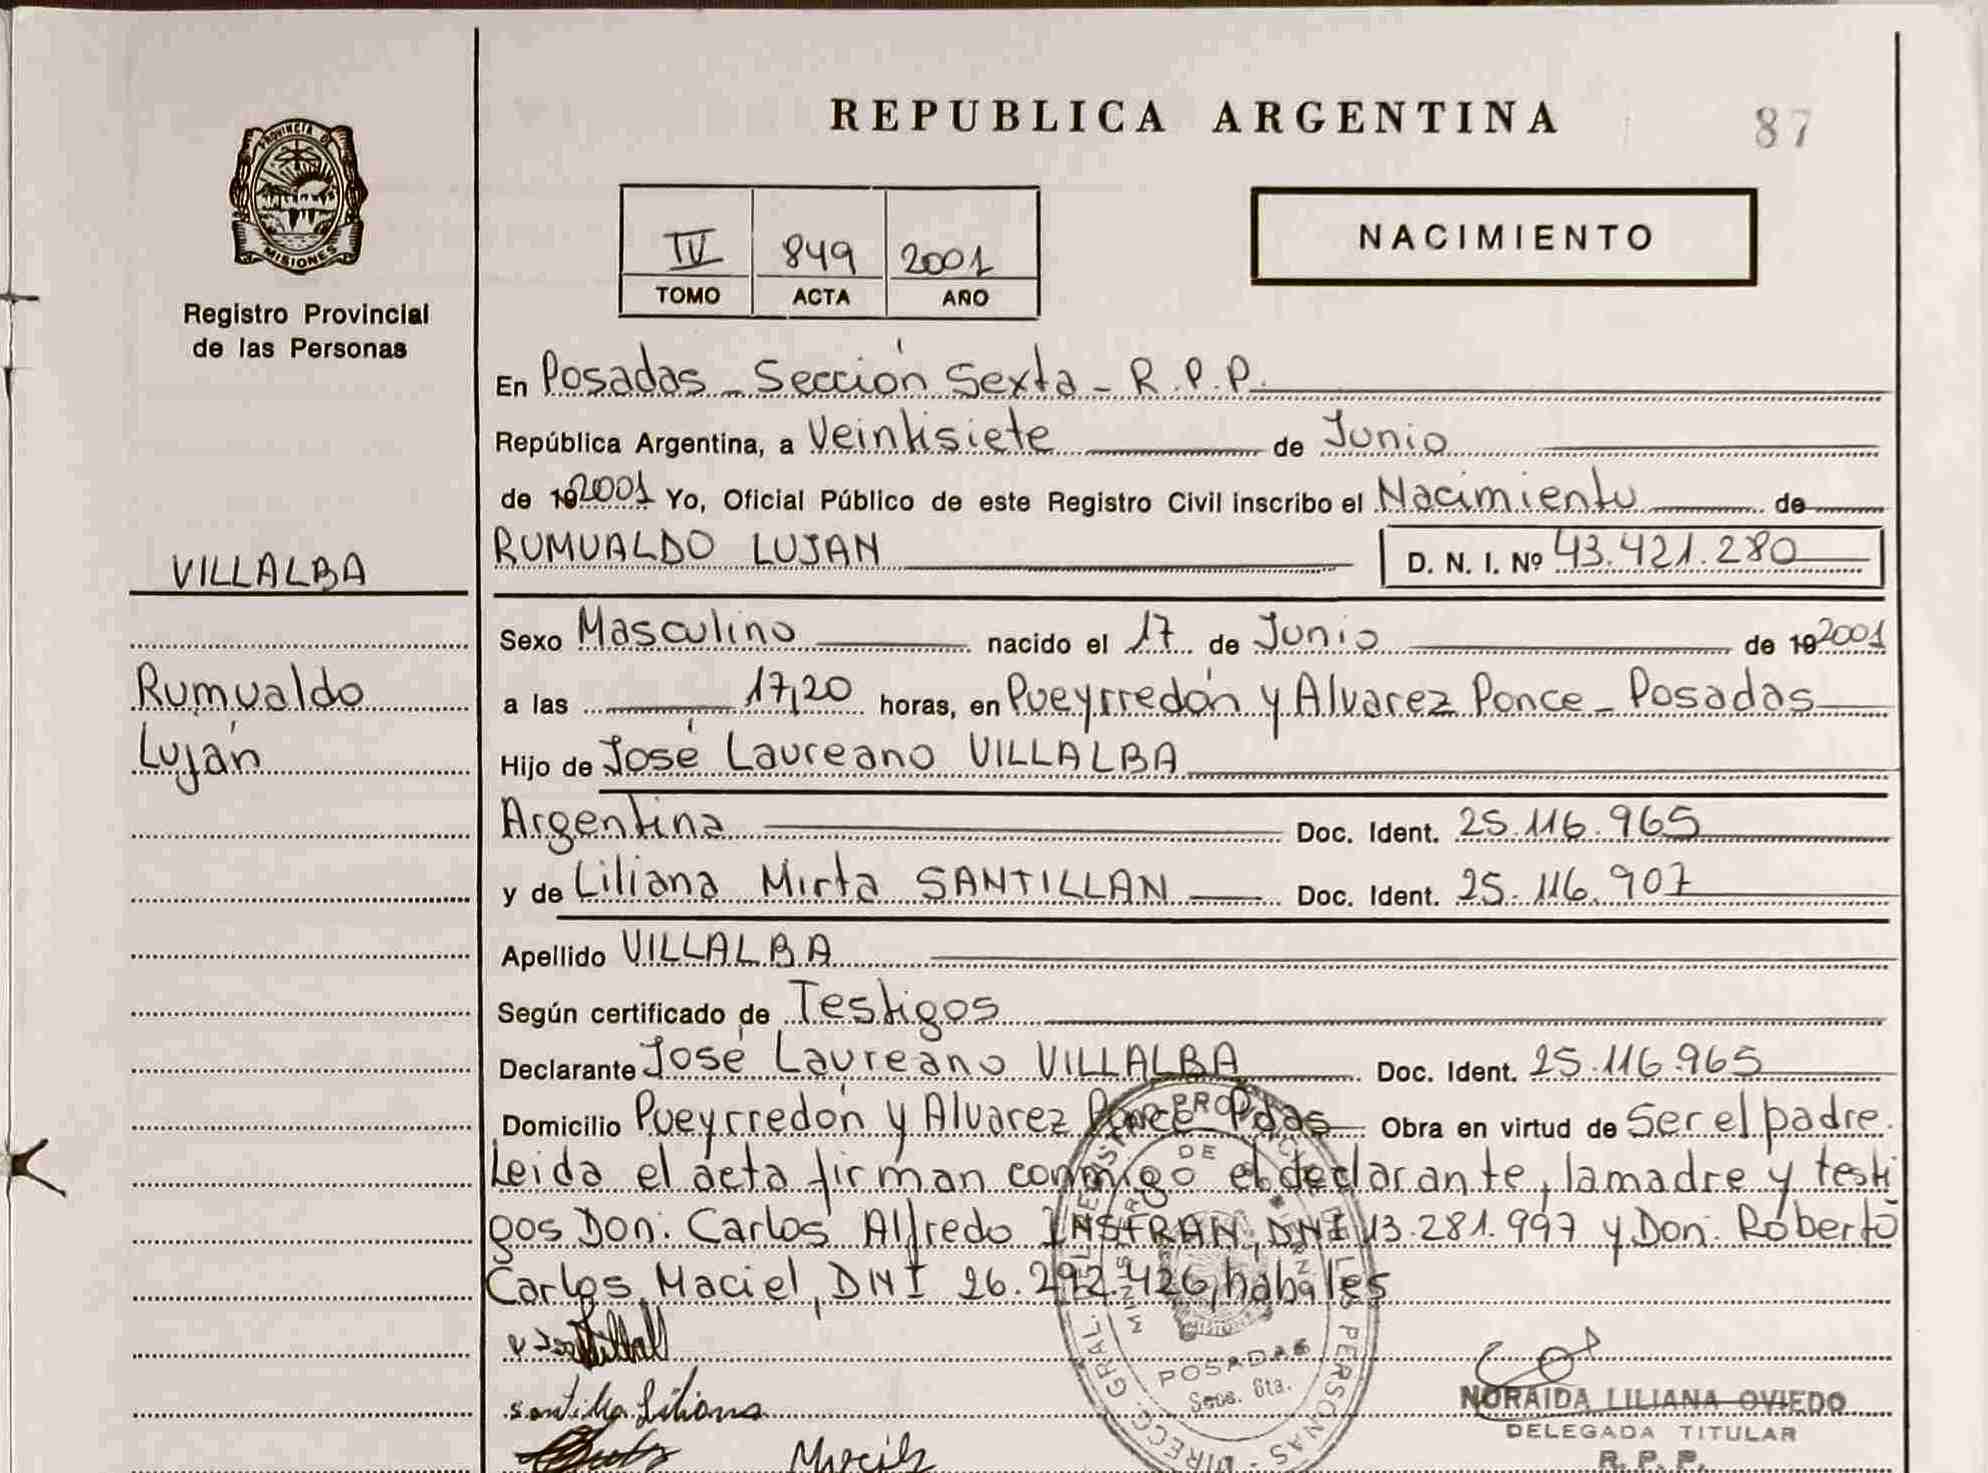 REPUBLICA ARGENTINA
87
PROVINCIA DE
MISIONES
Registro Provincial
de las Personas
IV 849 2001
TOMO ACTA AÑO
NACIMIENTO
En Posadas - Sección Sexta - R.P.P.
República Argentina, a Veintisiete de Junio
de 192001 Yo, Oficial Público de este Registro Civil inscribo el Nacimiento de
VILLALBA
Rumualdo
Luján
RUMUALDO LUJAN D. N. I. Nº 43.421.280
Sexo Masculino nacido el 17 de Junio de 192001
a las 17,20 horas, en Pueyrredón y Alvarez Ponce - Posadas
Hijo de José Laureano VILLALBA
Argentina Doc. Ident. 25.116.965
y de Liliana Mirta SANTILLAN Doc. Ident. 25.116.907
Apellido VILLALBA
Según certificado de Testigos
Declarante José Laureano VILLALBA Doc. Ident. 25.116.965
Domicilio Pueyrredón y Alvarez Ponce Pdas Obra en virtud de Ser el padre.
Leida el acta firman conmigo el declarante, la madre y testi
gos Don: Carlos Alfredo INSFRAN, DNI 13.281.997 y Don: Roberto
Carlos Maciel, DNI 26.292.426, habales
POSADAS
Secc. 6ta.
Santilla Liliana
NORAIDA LILIANA OVIEDO
DELEGADA TITULAR
R. P. P.